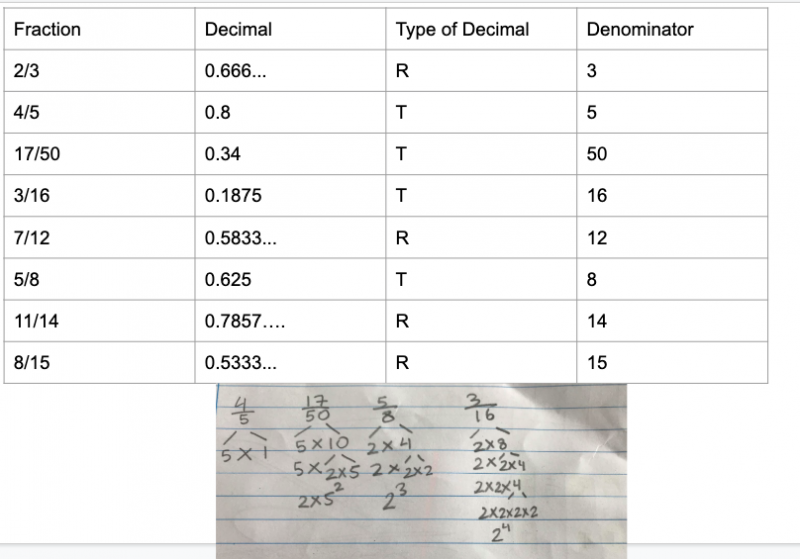 Fraction Decimal Type of Decimal Denominator
2/3 0.666... R 3
4/5 0.8 T 5
17/50 0.34 T 50
3/16 0.1875 T 16
7/12 0.5833... R 12
5/8 0.625 T 8
11/14 0.7857.... R 14
8/15 0.5333... R 15
4/5 17/50 5/8 3/16
5 x 1 5 x 10 2 x 4 2x8
5 x 2x5 2 x 2x2 2 x 2x4
2x5² 2³ 2x2x4
2x2x2x2
2⁴